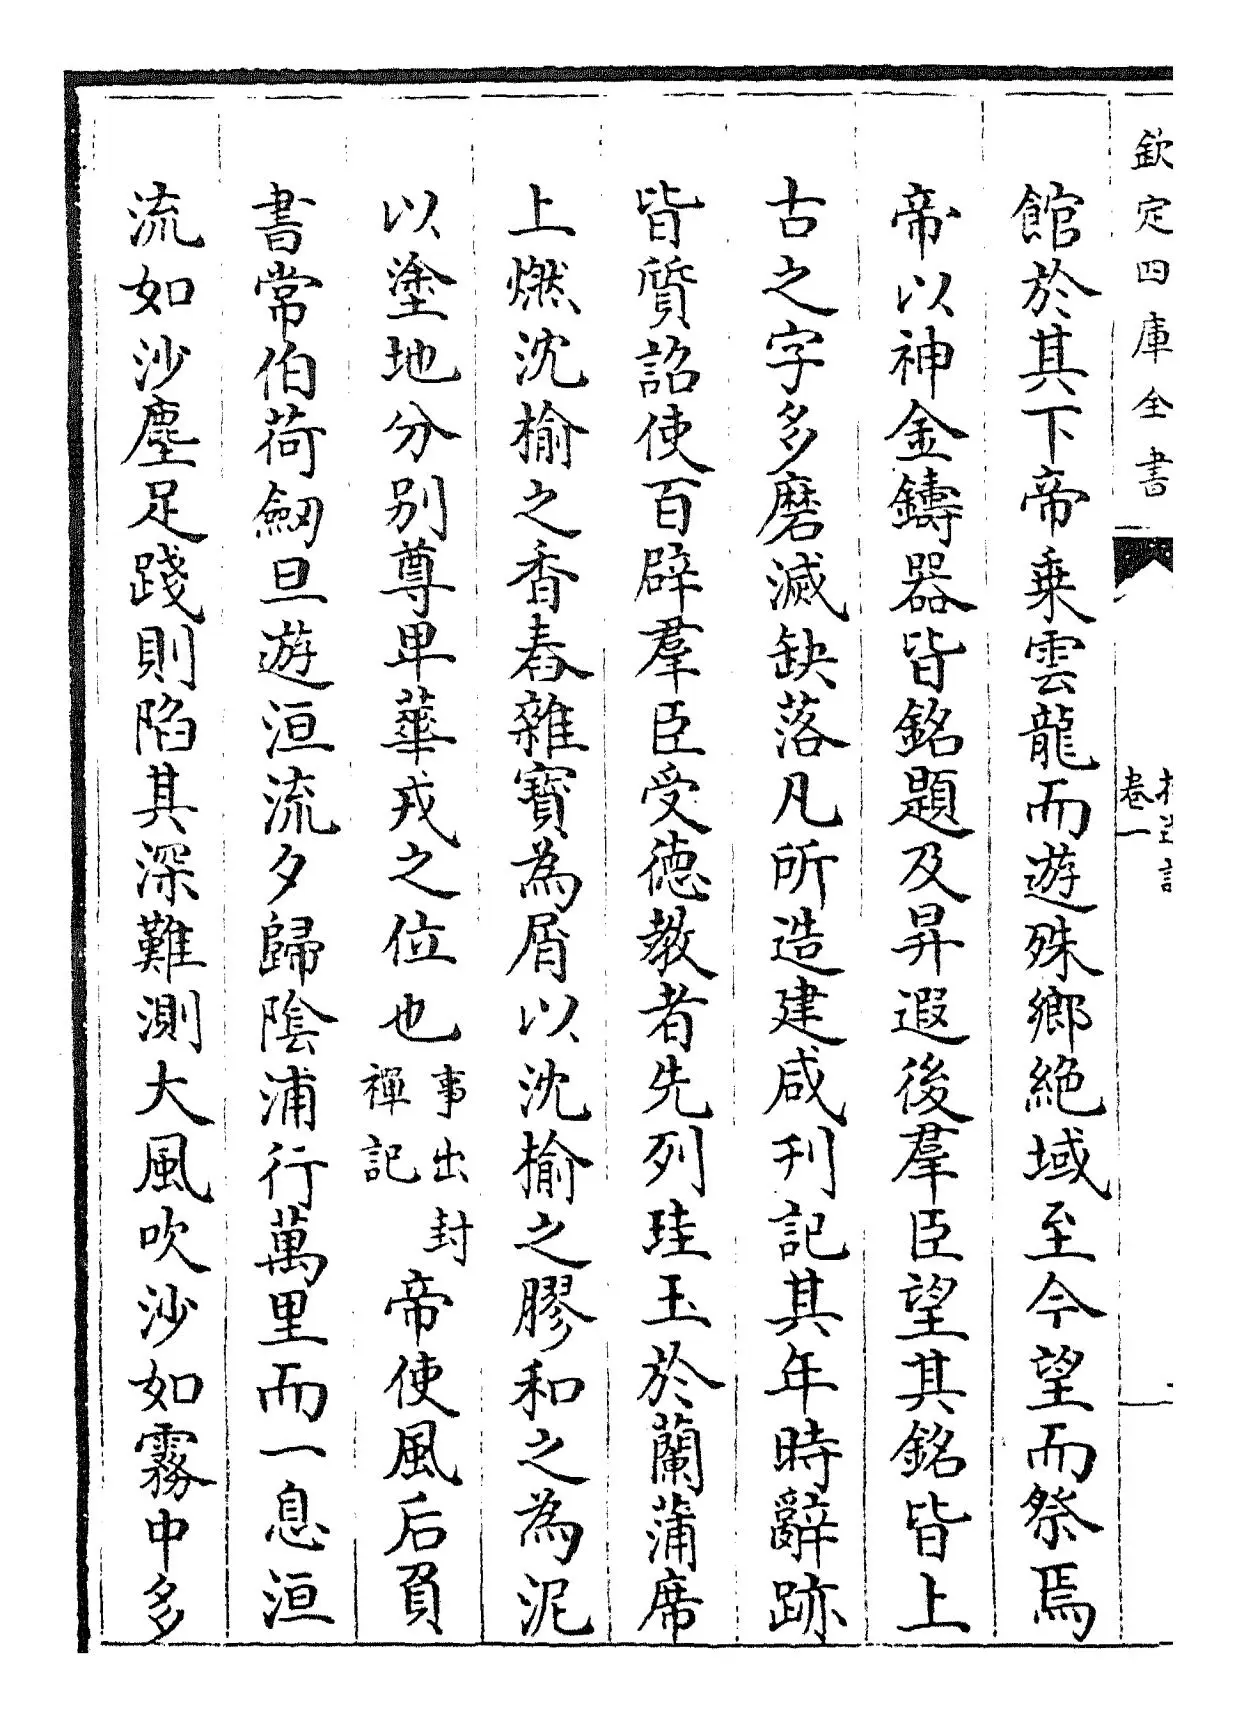 欽定四庫全書
卷一
館於其下帝乗雲龍而遊殊鄉絶域至今望而祭焉
帝以神金鑄器皆銘題及昇遐後羣臣望其銘皆上
古之字多磨滅缺落凡所造建咸刋記其年時辭跡
皆質詔使百辟羣臣受徳教者先列珪玉於蘭蒲席
上燃沈榆之香舂雜寳為屑以沈榆之膠和之為泥
以塗地分别尊卑華戎之位也事出封禪記帝使風后負
書常伯荷劒旦遊洹流夕歸隂浦行萬里而一息洹
流如沙塵足踐則陷其深難測大風吹沙如霧中多